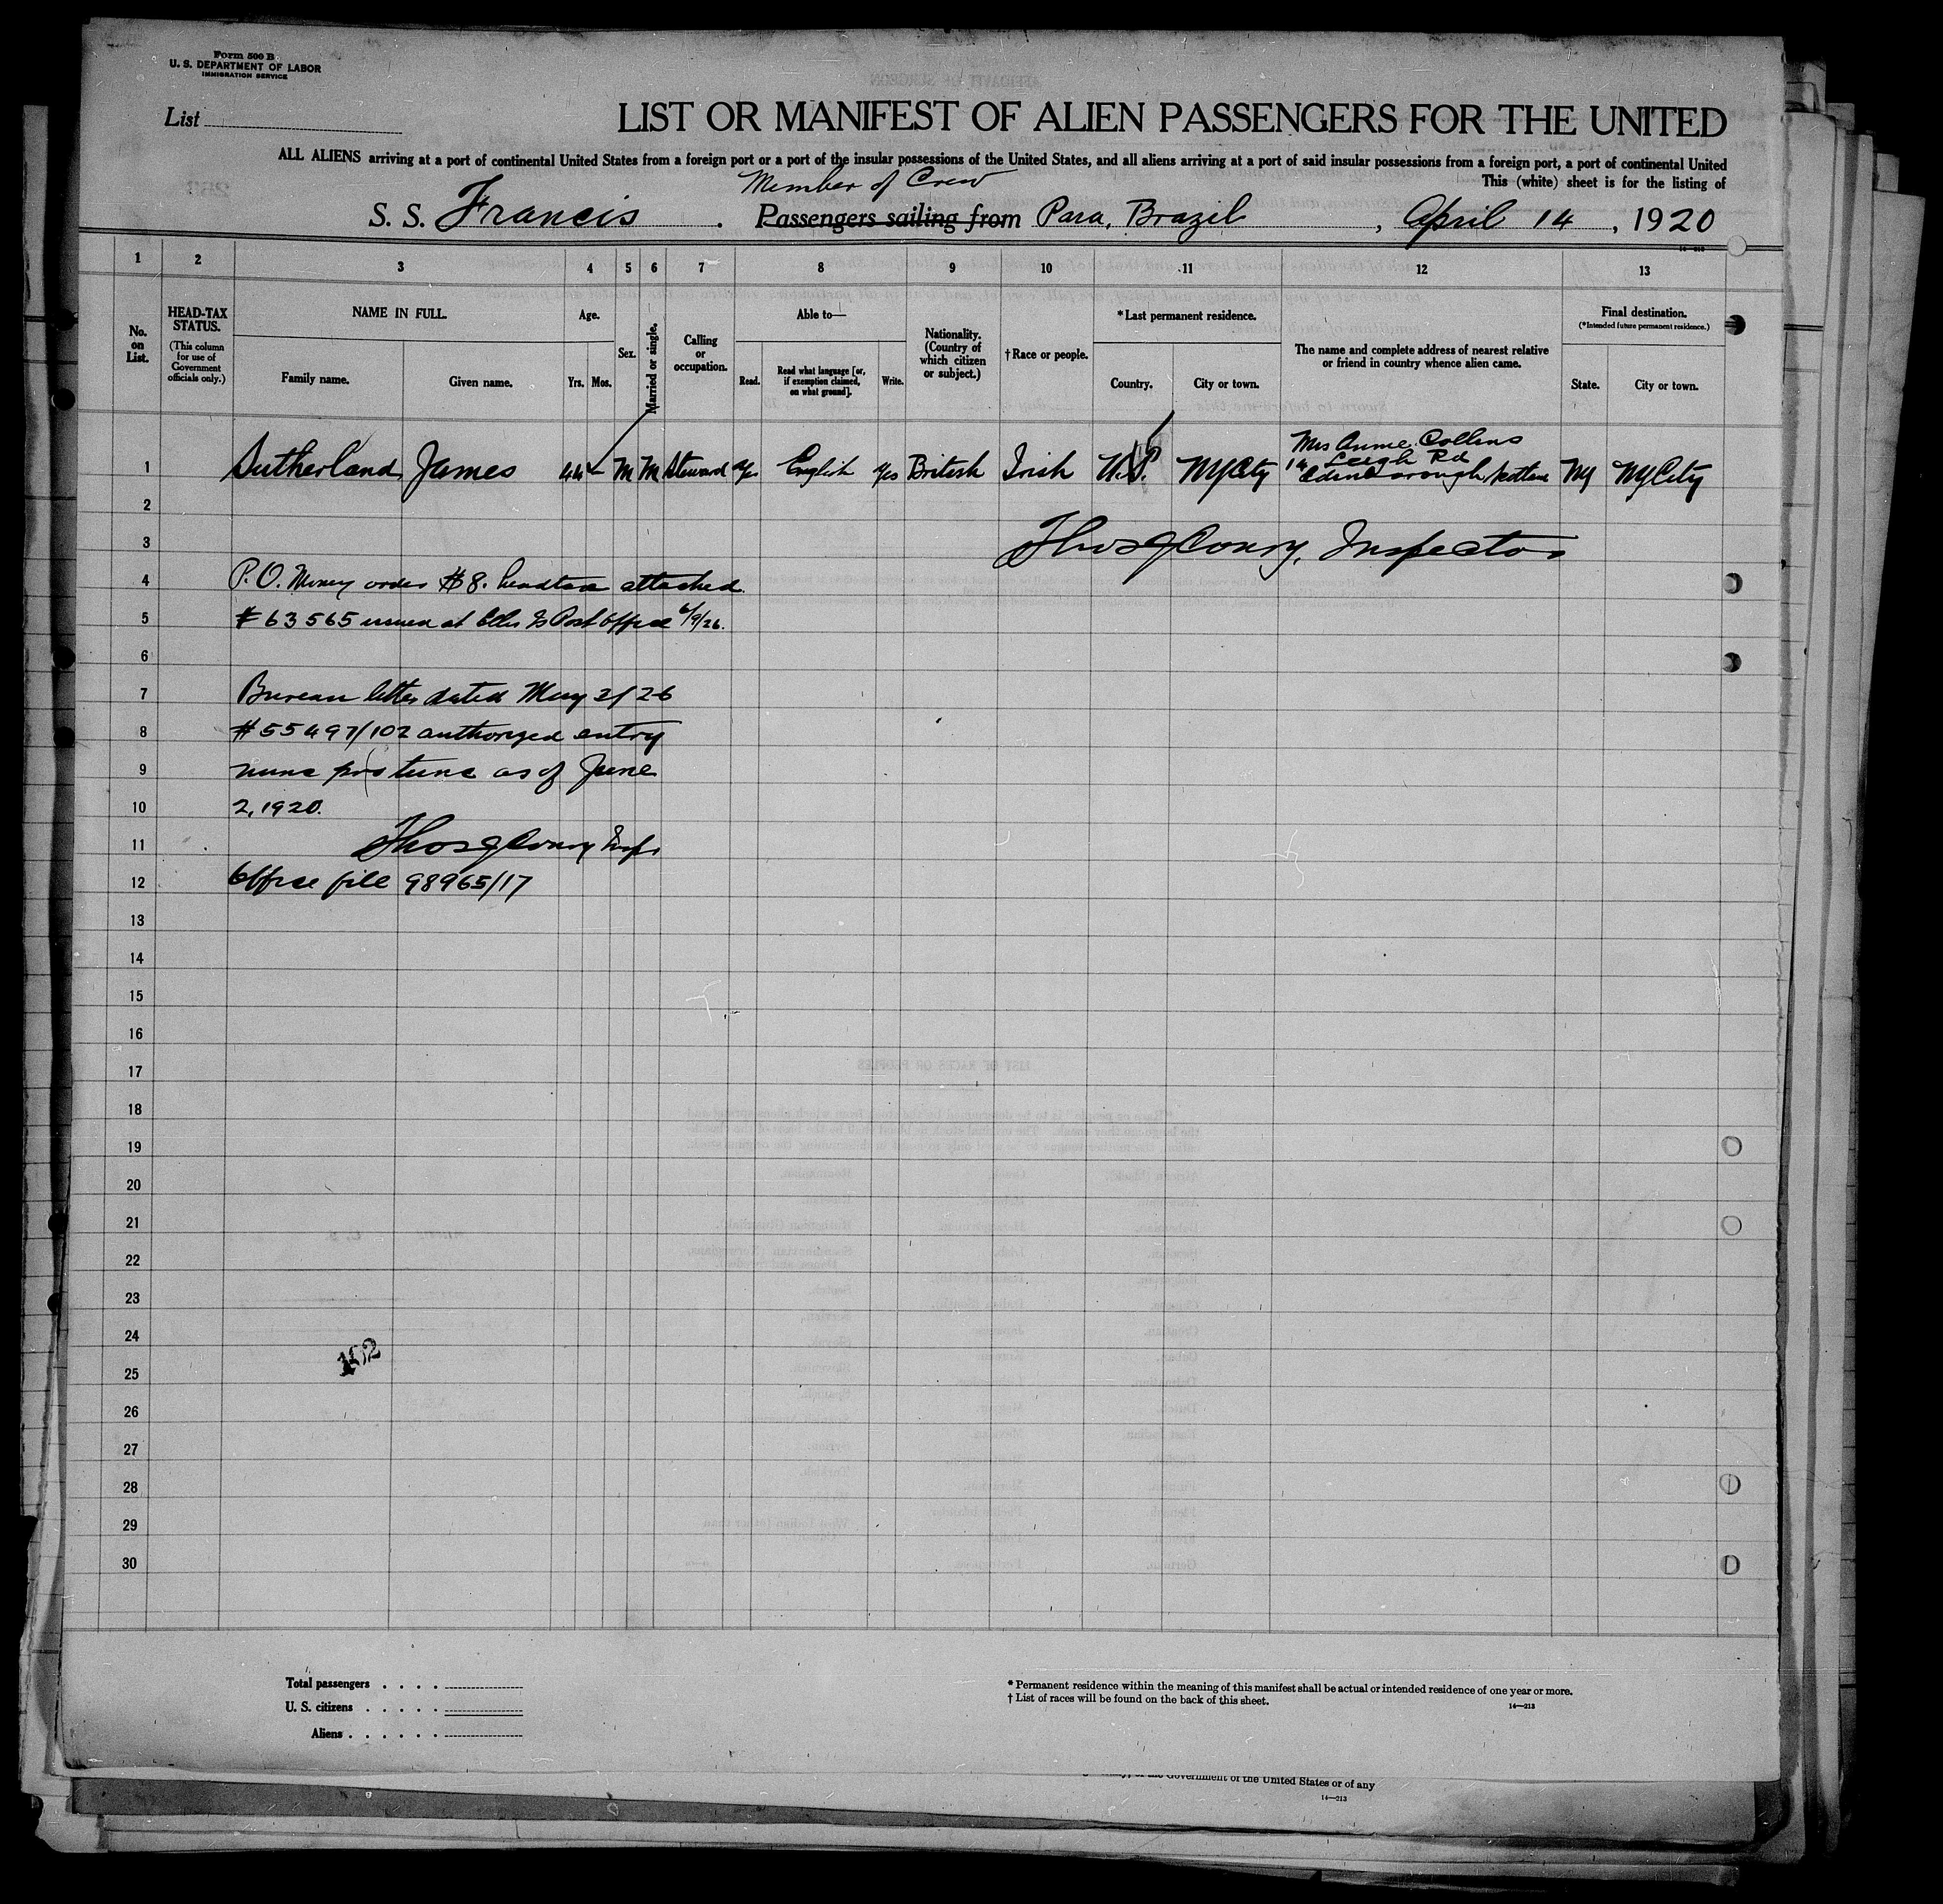 Form 500 B
U. S. DEPARTMENT OF LABOR
IMMIGRATION SERVICE
List
LIST OR MANIFEST OF ALIEN PASSENGERS FOR THE UNITED
ALL ALIENS arriving at a port of continental United States from a foreign port or a port of the insular possessions of the United States, and all aliens arriving at a port of said insular possessions from a foreign port, a port of continental United
This (white) sheet is for the listing of
Member of Crew
S. S. Francis . Passengers sailing from Para, Brazil , April 14 , 1920
1 2 3 4 5 6 7 8 9 10 11 12 13
No. on List.
HEAD-TAX STATUS.
(This column for use of Government officials only.)
NAME IN FULL.
Family name. Given name.
Age.
Yrs. Mos.
Sex.
Married or single.
Calling or occupation.
Able to—
Read. Read what language [or, if exemption claimed, on what ground]. Write.
Nationality. (Country of which citizen or subject.)
† Race or people.
* Last permanent residence.
Country. City or town.
The name and complete address of nearest relative or friend in country whence alien came.
Final destination.
(*Intended future permanent residence.)
State. City or town.
Mrs Annie Collins
14 Leigh Rd
1 Sutherland James 44 M M Steward Yes English Yes British Irish U.S. NYCity Edinborough Scotland NY NYCity
2
3 Inspector
4 P.O. Money order $8. headtax attached
5 # 63565 issued at Post Office 6/9/26.
6
7 Bureau letter dated May 3/26
8 # 55497/102 authorized entry
9 nunc pro tunc as of June
10 2, 1920.
11 Insp.
12 Office file 98965/17
13
14
15
16
17
18
19
20
21
22
23
24
102
25
26
27
28
29
30
Total passengers . . . .
U. S. citizens . . . . .
Aliens . . . . . .
* Permanent residence within the meaning of this manifest shall be actual or intended residence of one year or more.
† List of races will be found on the back of this sheet.
14—213
Government of the United States or of any
14—213